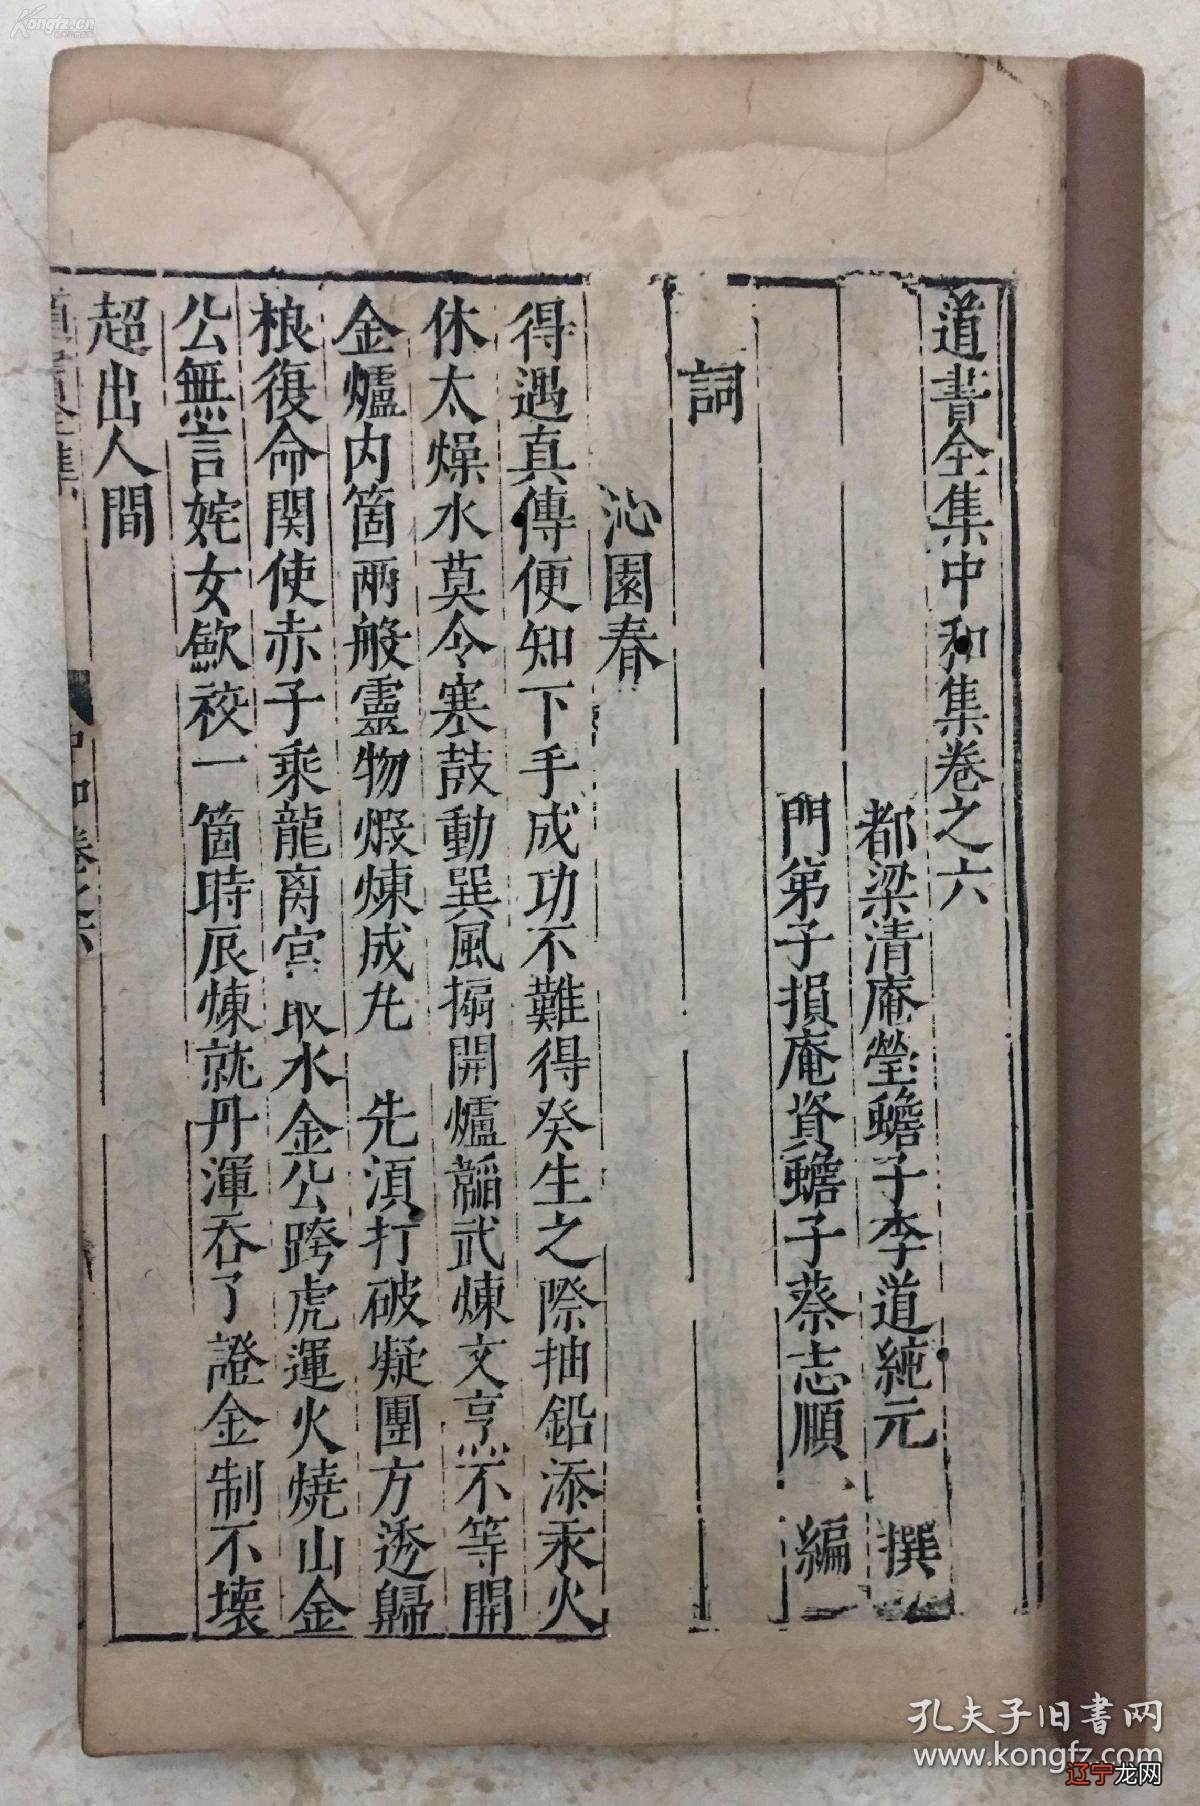 道書全集中和集卷之六
都梁清庵瑩蟾子李道純元 撰
門弟子損庵資蟾子蔡志順 編
詞
沁園春
得遇真傳便知下手成功不難得癸生之際抽鉛添汞火
休太燥水莫令寒鼓動巽風搧開爐鞴武煉文烹不等閒
金爐内箇兩般靈物煅煉成丸 先湏打破疑團方透歸
根復命関使赤子乘龍离宮取水金公跨虎運火燒山金
公無言姹女斂袂一箇時辰煉就丹渾吞了證金剛不壊
超出人間
中和卷之六
Kongfz.cn
孔夫子旧書网
www.kongfz.com
辽宁龙网